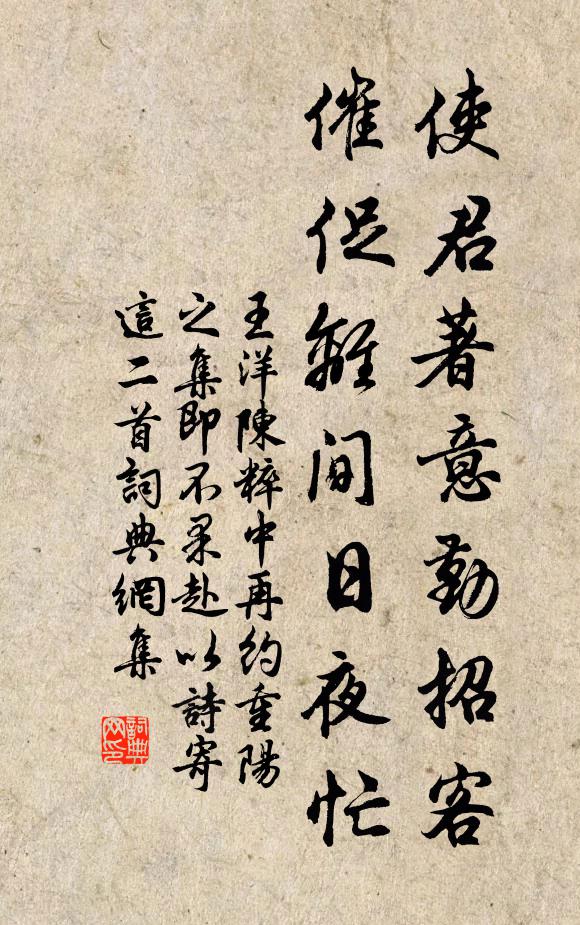 使君著意勤招客
催促離間日夜忙
王洋陳粹中再約重陽
之集即不果赴以詩寄
這二首詞典網集
詞典
网印